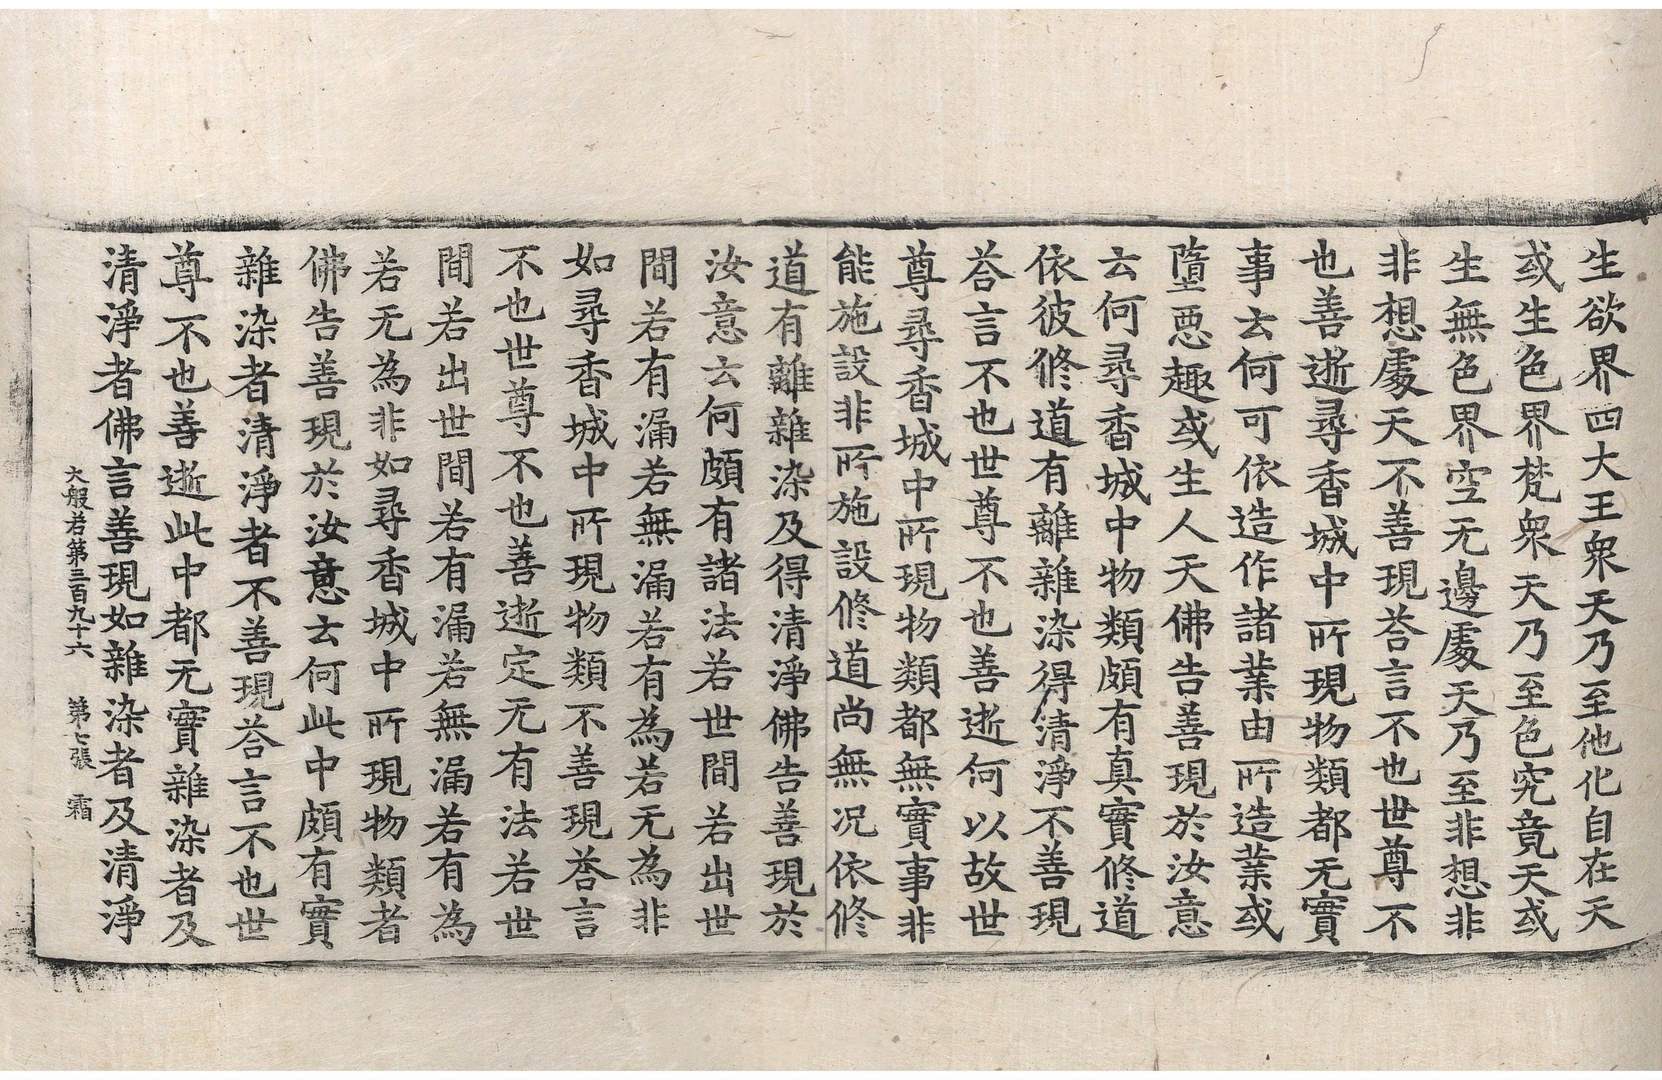 生欲界四大王衆天乃至他化自在天
或生色界梵衆天乃至色究竟天或
生無色界空无邊處天乃至非想非
非想處天不善現荅言不也世尊不
也善逝尋香城中所現物類都无實
事云何可依造作諸業由所造業或
墮惡趣或生人天佛告善現於汝意
云何尋香城中物類頗有真實修道
依彼修道有離雜染得清淨不善現
荅言不也世尊不也善逝何以故世
尊尋香城中所現物類都無實事非
能施設非所施設修道尚無况依修
道有離雜染及得清淨佛告善現於
汝意云何頗有諸法若世間若出世
間若有漏若無漏若有為若无為非
如尋香城中所現物類不善現荅言
不也世尊不也善逝定无有法若世
間若出世間若有漏若無漏若有為
若无為非如尋香城中所現物類者
佛告善現於汝意云何此中頗有實
雜染者清淨者不善現荅言不也世
尊不也善逝此中都无實雜染者及
清淨者佛言善現如雜染者及清淨
大般若第三百九十六 第七張 霜